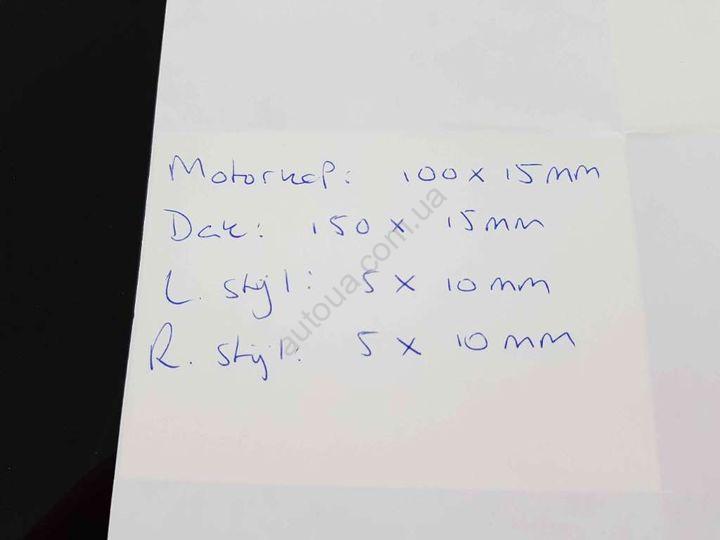 Motorkap: 100 x 15 mm
Dak: 150 x 15 mm
L. stijl: 5 x 10 mm
R. stijl: 5 x 10 mm
autoua.com.ua